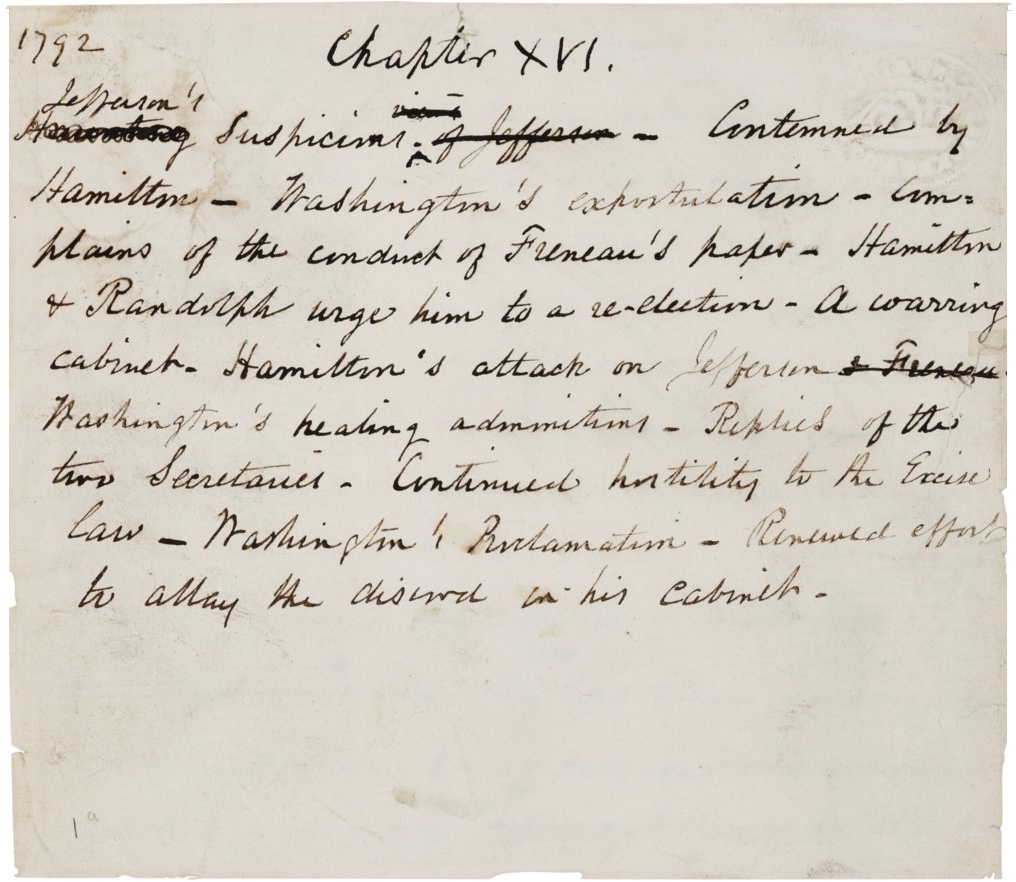 1792
Chapter XVI.
Jefferson's
Suspicions of Jefferson – Contemned by
Hamilton – Washington's expostulation – Com=
plains of the conduct of Freneau's paper – Hamilton
& Randolph urge him to a re-election – A warring
cabinet – Hamilton's attack on Jefferson & Freneau
Washington's healing admonitions – Replies of the
two Secretaries – Continued hostility to the Excise
law – Washington's Proclamation – Renewed effort
to allay the discord in his Cabinet –
1a